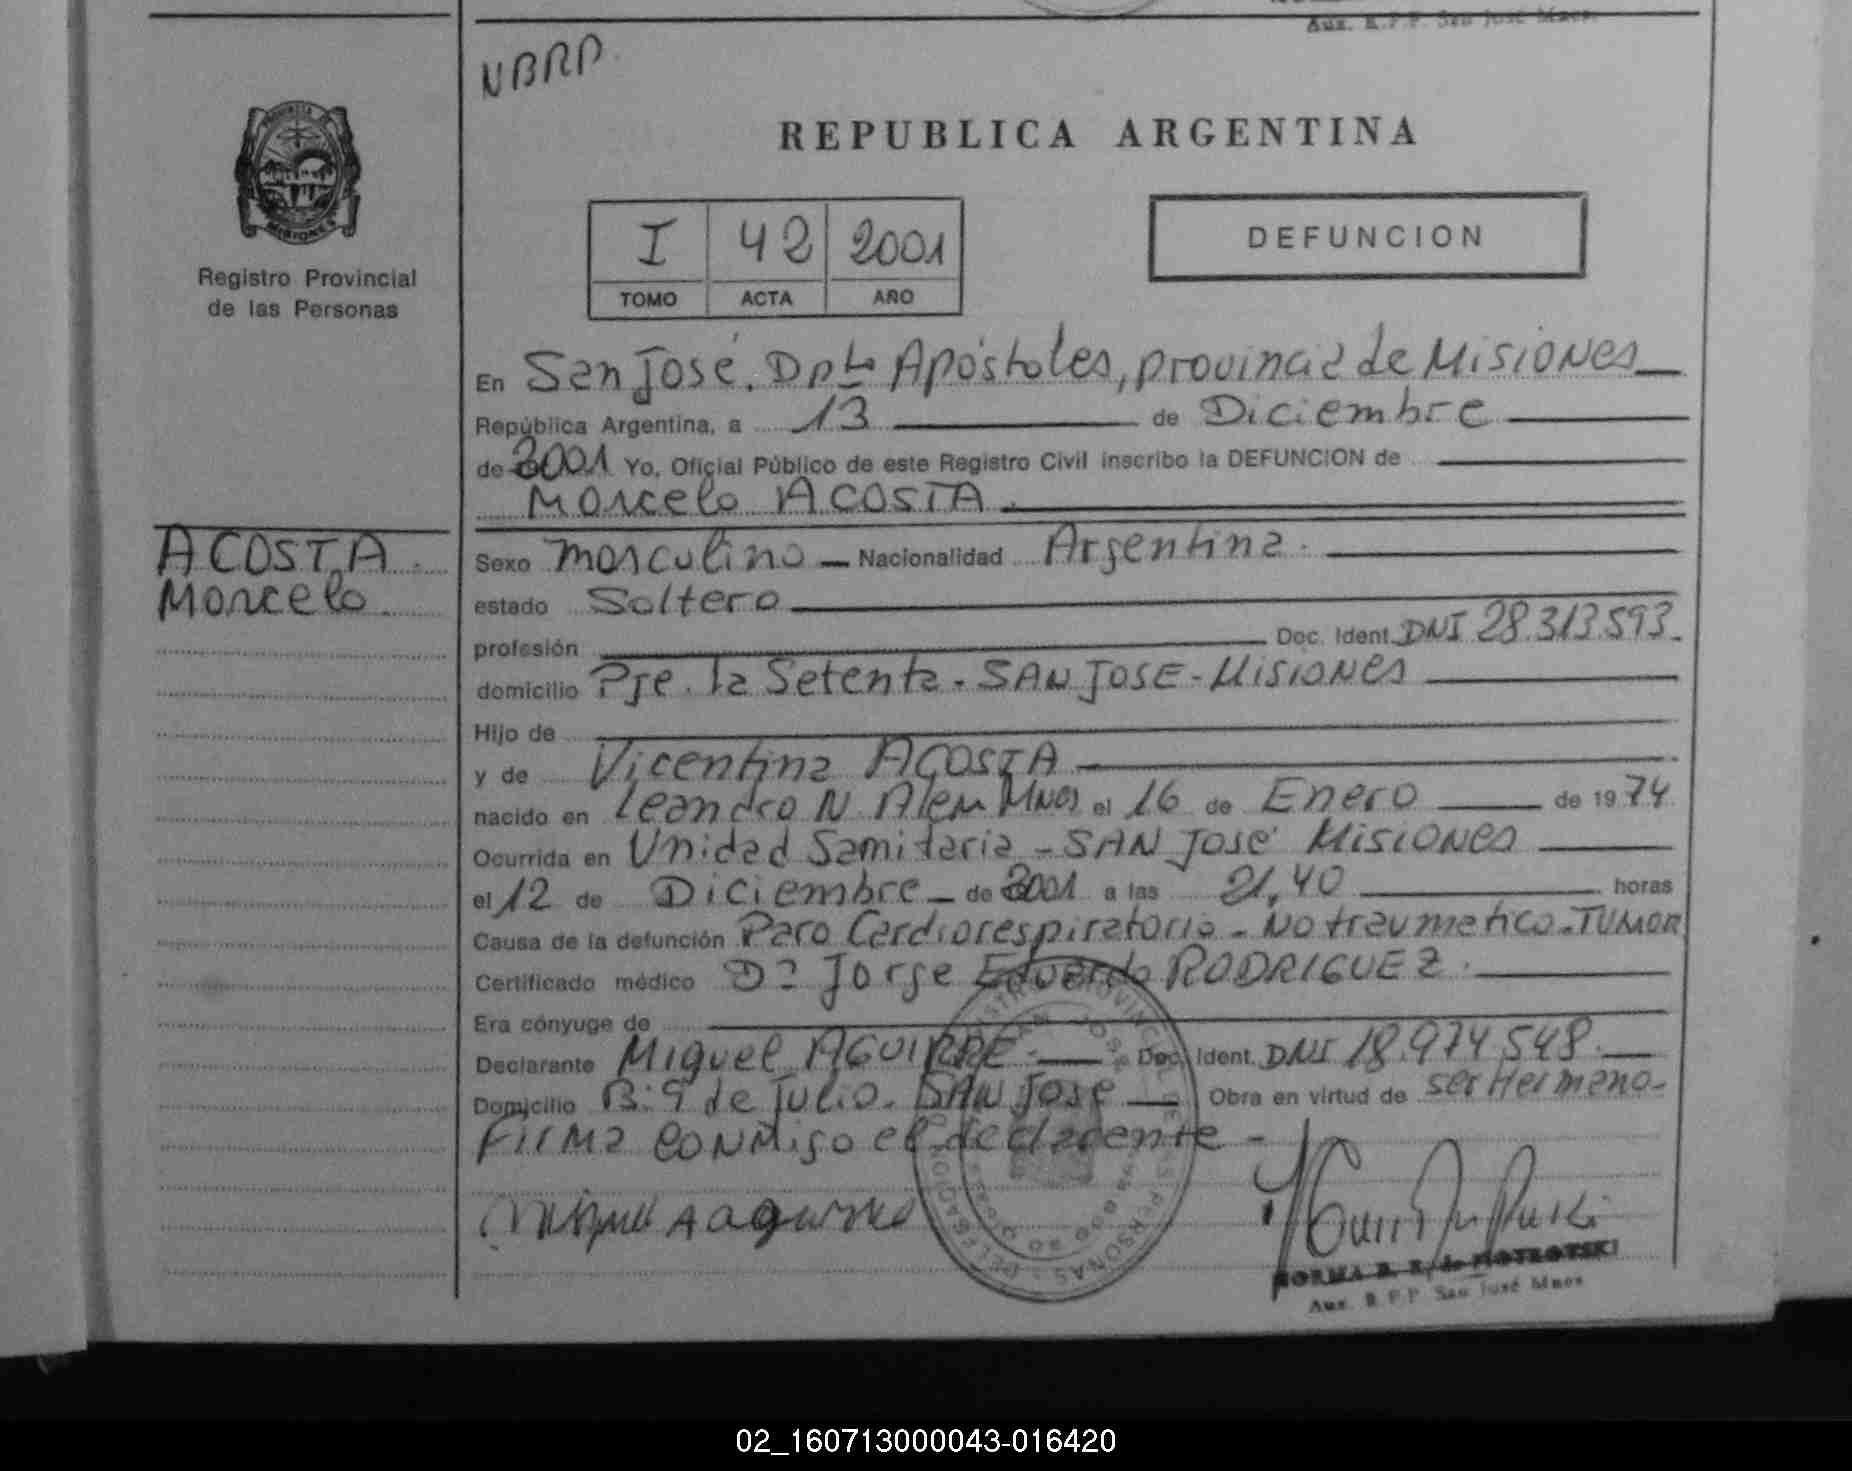 Aux. R.P.P. San José Mnes.
NBRP.
REPUBLICA ARGENTINA
PROVINCIA DE
MISIONES
Registro Provincial
de las Personas
I 42 2001
TOMO ACTA AÑO
DEFUNCION
En San José. Dpto Apóstoles, provincia de Misiones
República Argentina, a 13 de Diciembre
de 2001 Yo, Oficial Público de este Registro Civil inscribo la DEFUNCION de
Marcelo ACOSTA.
ACOSTA
Marcelo
Sexo masculino Nacionalidad Argentina.
estado Soltero
profesión Doc. Ident. DNI 28.313.593.
domicilio Pje. la Setenta - SAN JOSE - Misiones
Hijo de
y de Vicentina ACOSTA
nacido en Leandro N. Alem Mnes el 16 de Enero de 1974
Ocurrida en Unidad Samitaria - SAN José Misiones
el 12 de Diciembre de 2001 a las 21,40 horas
Causa de la defunción Paro Cardiorespiratorio - No traumatico - TUMOR
Certificado médico Dr Jorge Eduardo RODRIGUEZ.
Era cónyuge de
Declarante Miguel AGUIRRE - Doc. Ident. DNI 18.974.548.
Domicilio B: 9 de Julio. SAN José Obra en virtud de ser Hermano-
Firma conmigo el declarante -
NORMA B. R. de PIOTROTSKI
Aux. R.P.P. San José Mnes
02_160713000043-016420